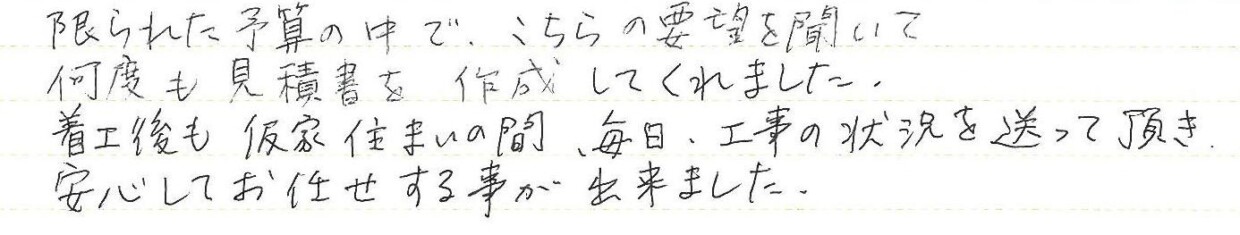 限られた予算の中で、こちらの要望を聞いて
何度も見積書を作成してくれました。
着工後も仮家住まいの間、毎日、工事の状況を送って頂き、
安心してお任せする事が出来ました。